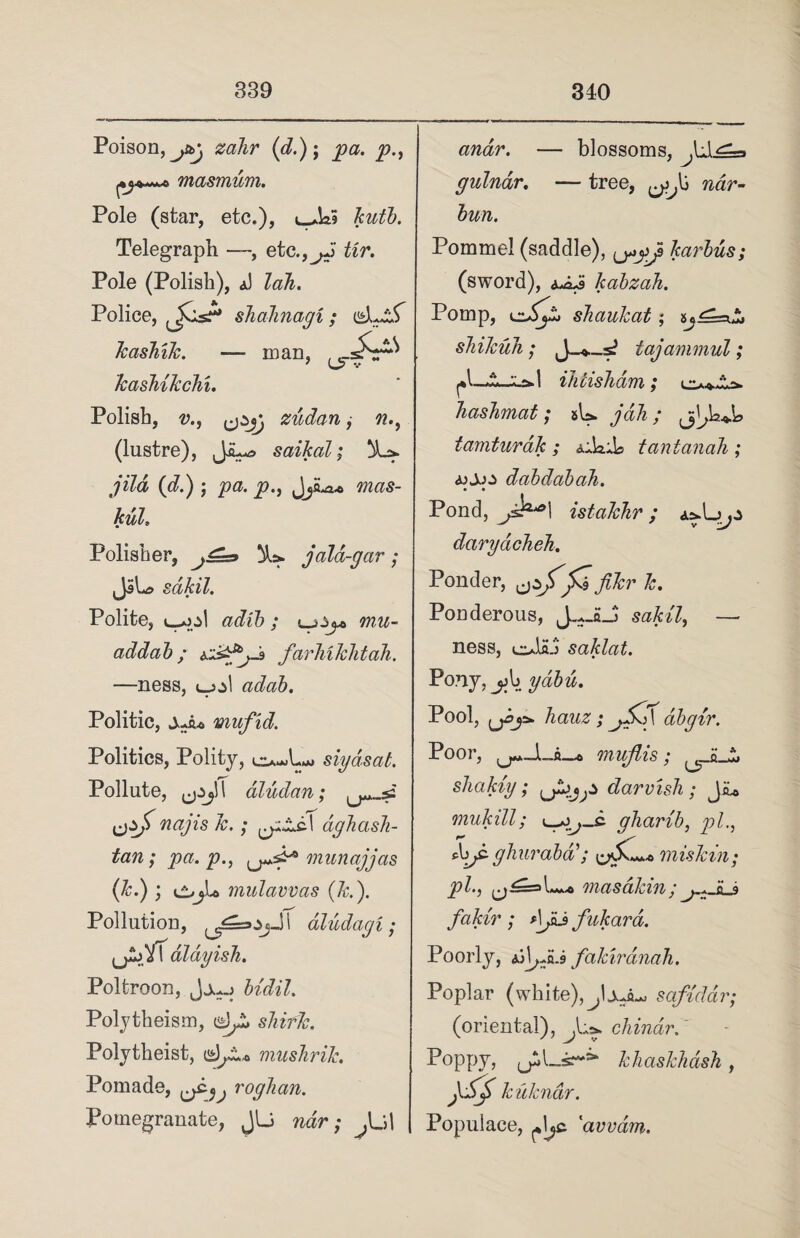 339
340
Poison, زهر zahr (d.); pa. p.,
مسموم masmúm.
Pole (star, etc.), قطب kutb.
Telegraph —, etc., تير tír.
Pole (Polish), له lah.
Police, شحنگي shahnagí; كشيك
kashík. — man, كشيكچي
kashíkchí.
Polish, v., زودن zúdan; n.,
(lustre), صيقل saikal; جلا
jilá (d.); pa. p., مصقول mas-
kúl.
Polisher, جلاگر jalá-gar;
صاقل sákil.
Polite, اديب adíb; مودب mu-
addab; فرهيخته farhíkhtah.
—ness, ادب adab.
Politic, مفيد mufíd.
Politics, Polity, سياست siyásat.
Pollute, آلودن álúdan; نجس
كردن najis k.; آغشتن ághash-
tan; pa. p., منجس munajjas
(k.); ملوث mulavvas (k.).
Pollution, آلودگي álúdagí;
آلايش áláyish.
Poltroon, بيدل bídil.
Polytheism, شرك shirk.
Polytheist, مشرك mushrik.
Pomade, روغن roghan.
Pomegranate, نار nár; انار
anár. — blossoms, گلنار
gulnár. — tree, ناربن nár-
bun.
Pommel (saddle), قربوس karbús;
(sword), قبضه kabzah.
Pomp, شوكت shaukat; شكوه
shikúh; تجمل tajammul;
احتشام ihtishám; حشمت
hashmat; جاه jáh; طمطراق
tamturák; طنطنه tantanah;
دبدبه dabdabah.
Pond, اصطخر istakhr; درياچه
daryácheh.
Ponder, فكر كردن fikr k.
Ponderous, ثقيل sakíl, —
ness, ثقلت saklat.
Pony, يابو yábú.
Pool, حوض hauz; آبگير ábgír.
Poor, مفلس muflis; شقي
shakíy; درويش darvísh; مقل
mukill; غريب gharíb, pl.,
غرباء ghurabá'; مسكين miskín;
pl., مساكين masákín; فقير
fakír; فقراء fukará.
Poorly, فقيرانه fakíránah.
Poplar (white), سفيدار safídár;
(oriental), چنار chinár.
Poppy, خشخاش khaskhásh,
كوكنار kúknár.
Populace, عوام 'avvám.